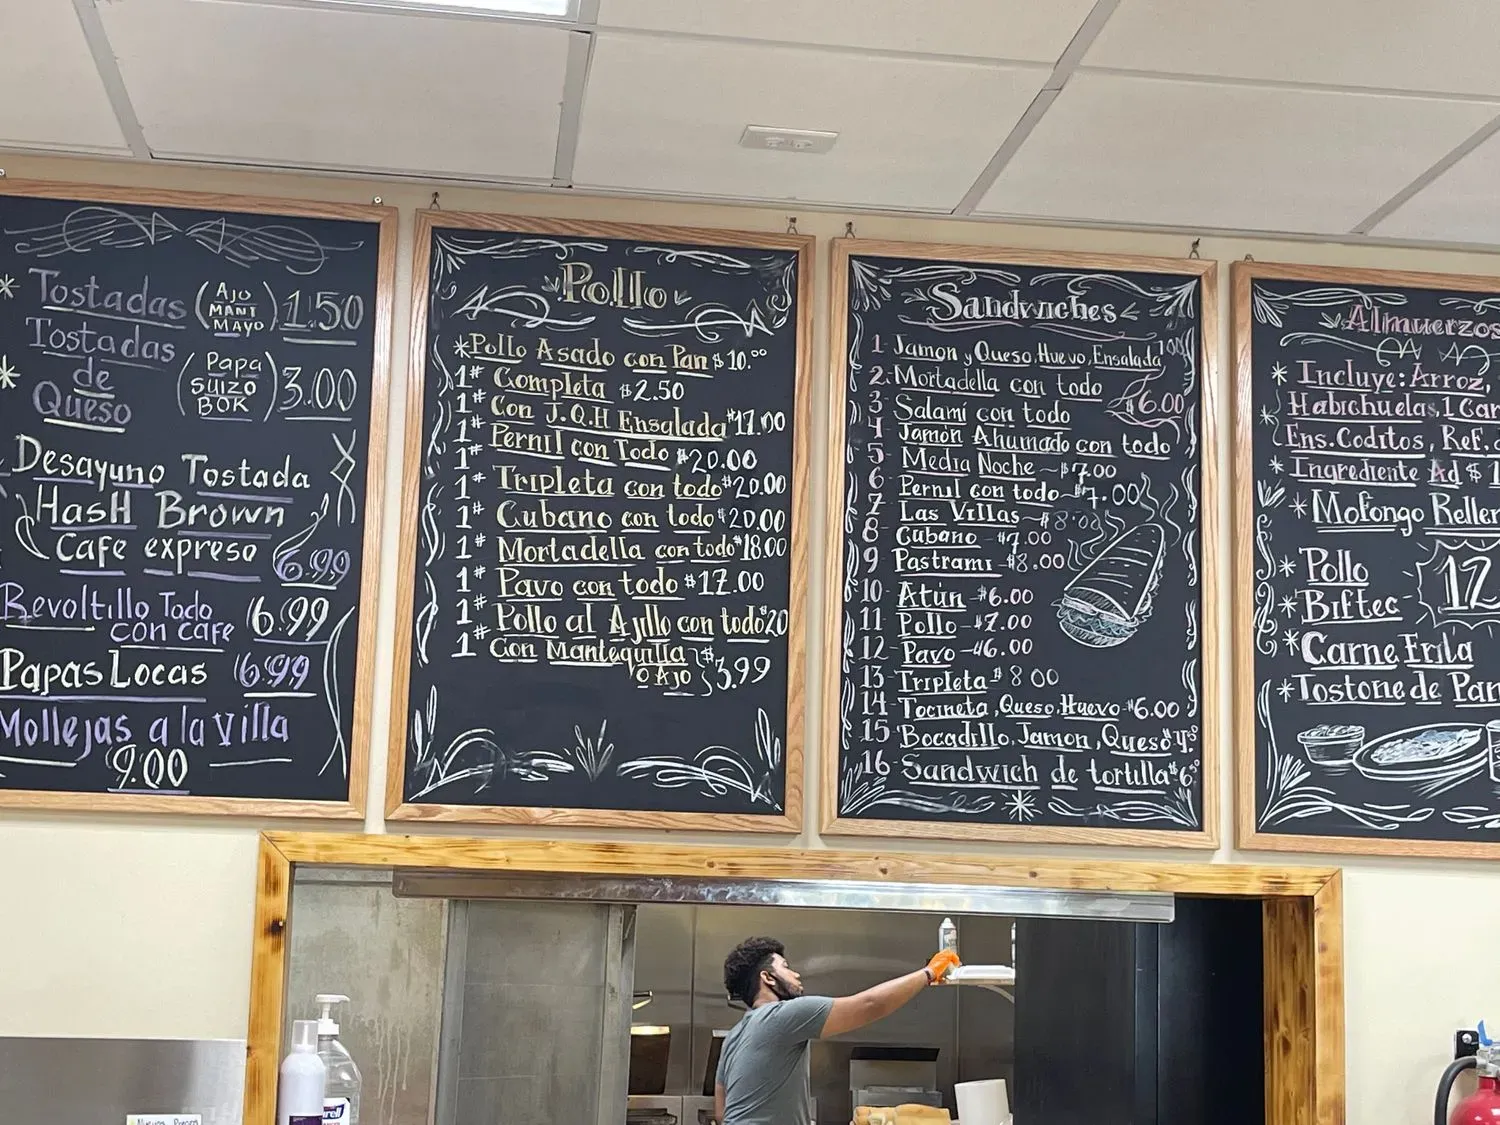 * Tostadas (Ajo Mani Mayo) 1.50
* Tostadas de Queso (Papa Suizo Bok) 3.00
Desayuno Tostada
Hash Brown
Cafe expreso 6.99
Revoltillo Todo
con cafe 6.99
Papas Locas 6.99
Mollejas a la villa
9.00
Pollo
*Pollo Asado con Pan $10.00
1# Completa $2.50
1# Con J.Q.H Ensalada $17.00
1# Pernil con Todo $20.00
1# Tripleta con todo $20.00
1# Cubano con todo $20.00
1# Mortadella con todo $18.00
1# Pavo con todo $17.00
1# Pollo al Ajillo con todo $20
1# Con Mantequilla
o Ajo $3.99
Sandwiches
1 Jamon y Queso, Huevo, Ensalada
2. Mortadella con todo
$6.00
3 Salami con todo
4 Jamón Ahumado con todo
5 Media Noche - $7.00
6 Pernil con todo - $7.00
7 Las Villas - $8.00
8 Cubano - $7.00
9 Pastrami - $8.00
10 Atún - $6.00
11 Pollo - $7.00
12 Pavo - $6.00
13 Tripleta $8.00
14 Tocineta, Queso, Huevo - $6.00
15 Bocadillo, Jamon, Queso
16 Sandwich de tortilla $6.50
Almuerzos
* Incluye: Arroz,
Habichuelas, 1 Car
Ens. Coditos, Ref.
* Ingrediente Ad $1
* Mofongo Rellen
* Pollo
* Biftec
12
* Carne Frita
* Tostone de Pan